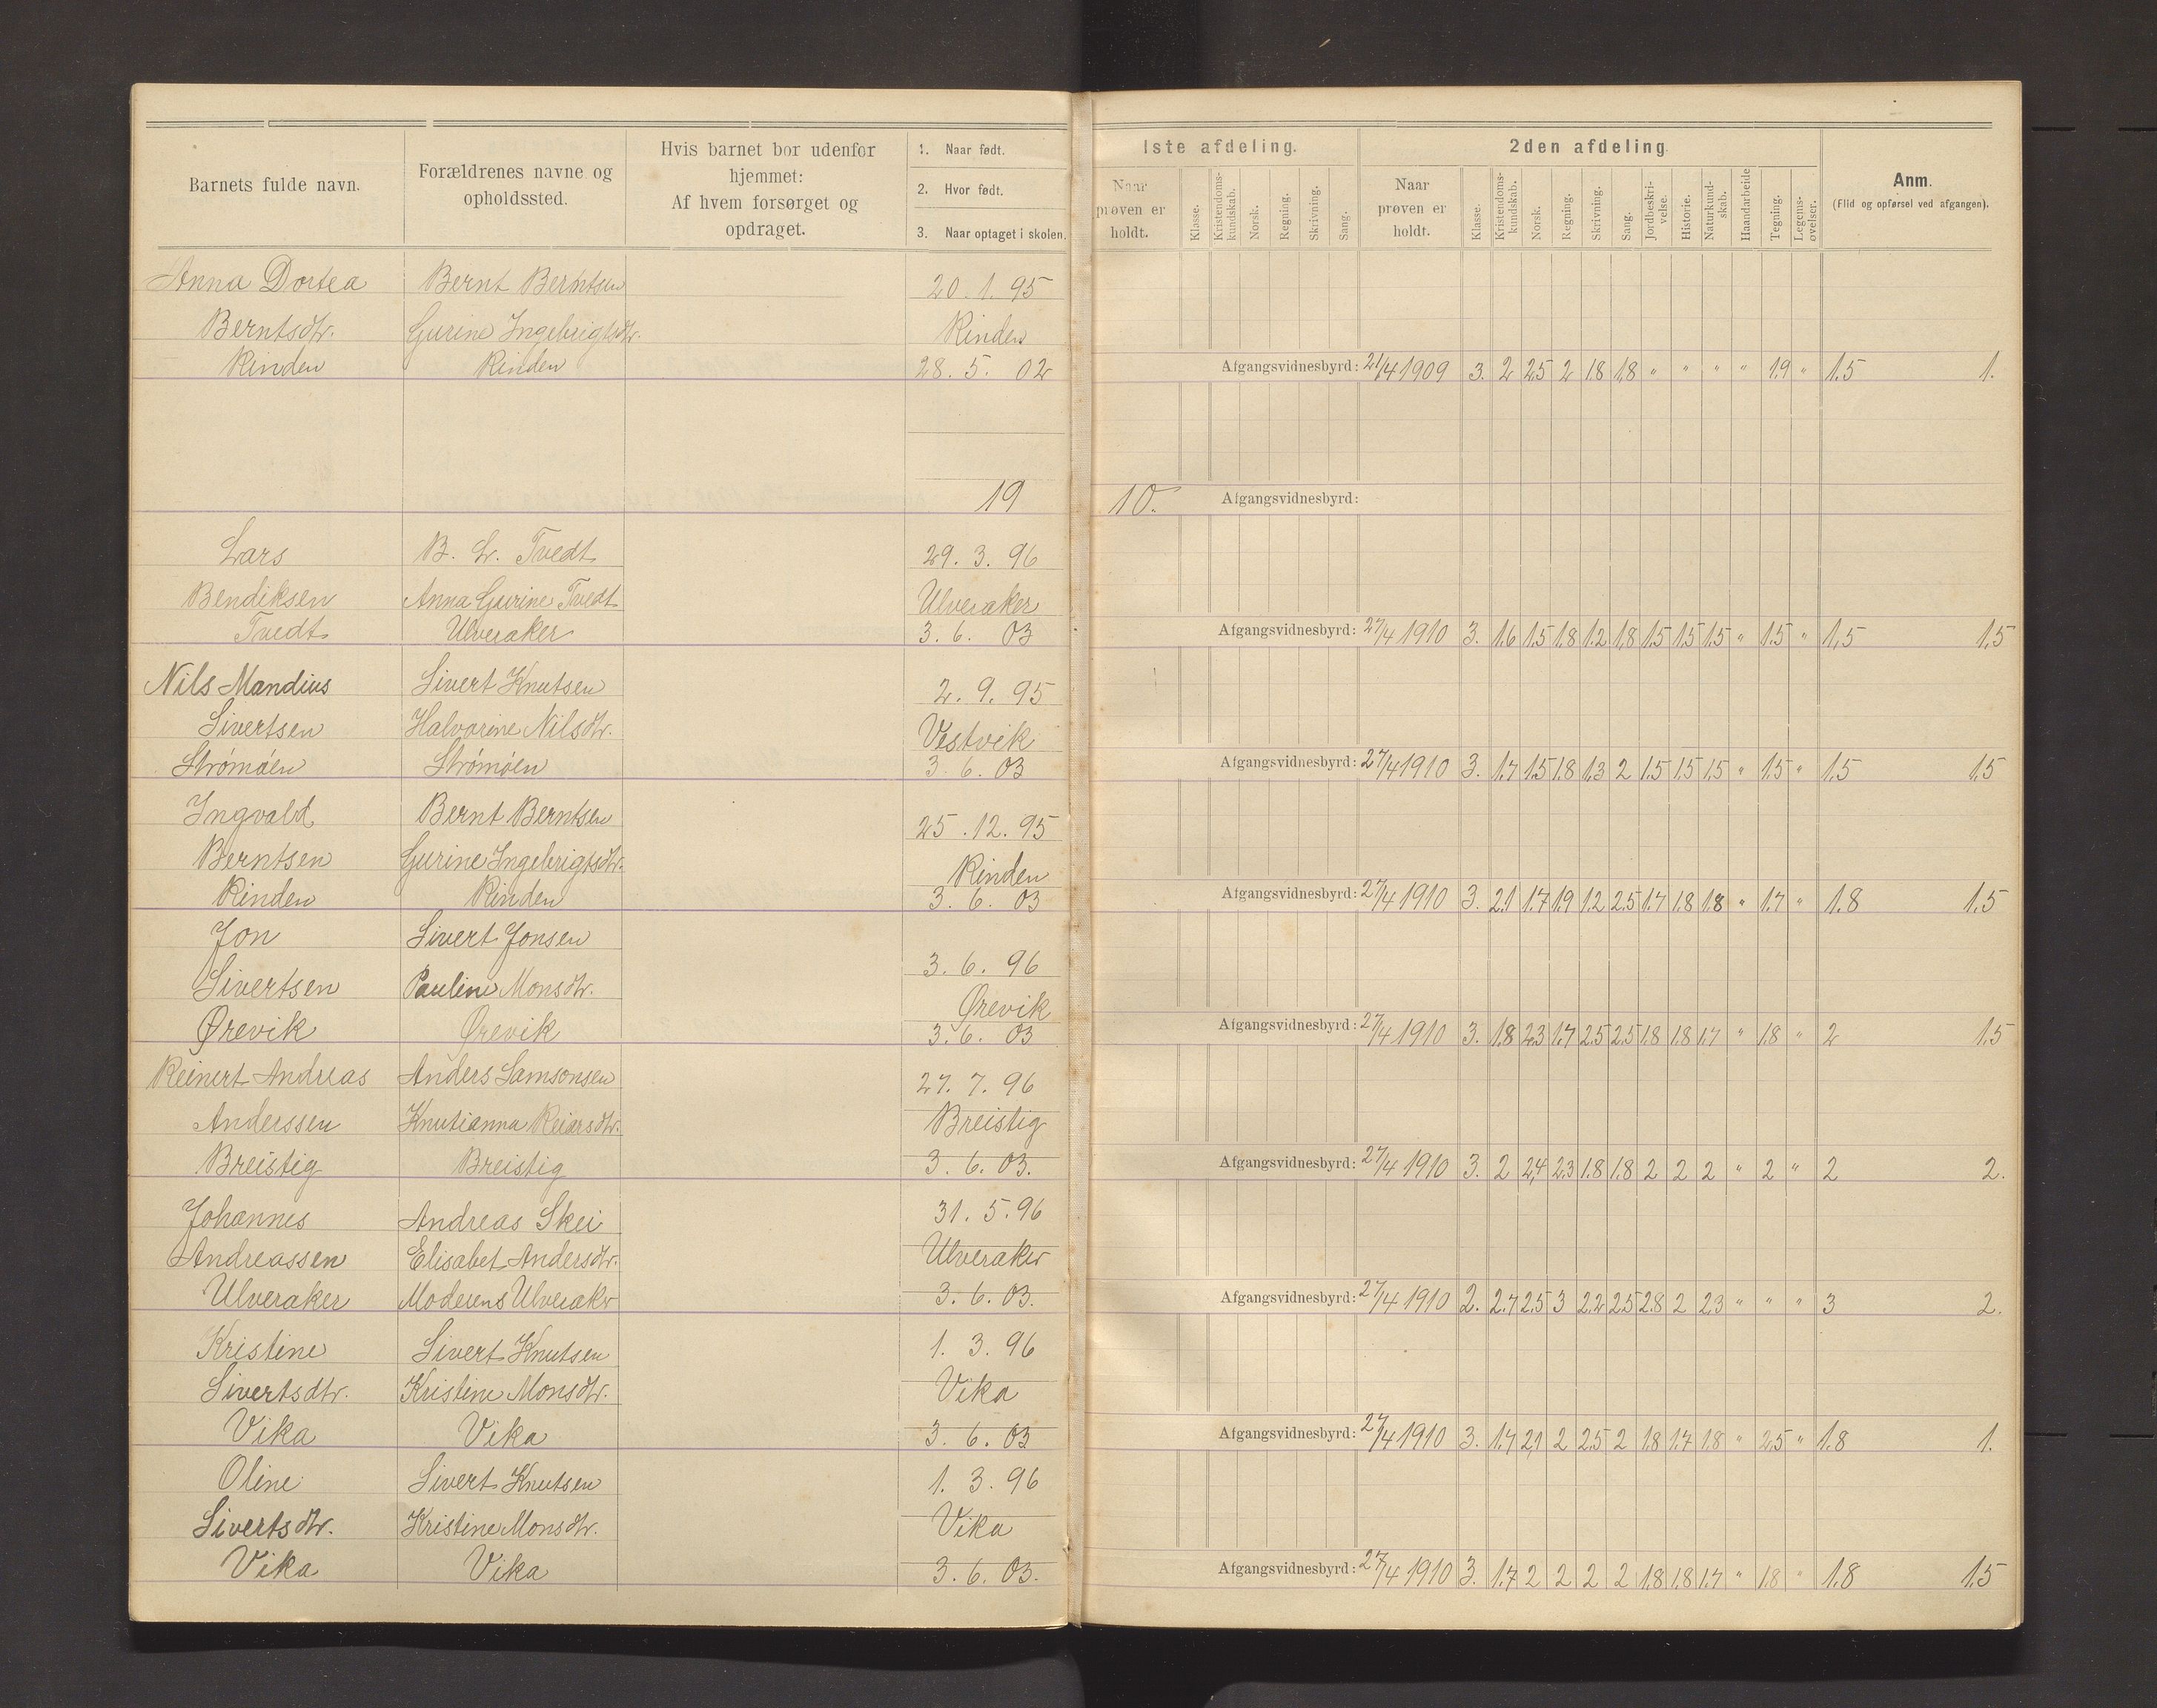 Barnets fulde navn.
Forældrenes navne og opholdssted.
Hvis barnet bor udenfor hjemmet:
Af hvem forsørget og opdraget.
1. Naar født.
2. Hvor født.
3. Naar optaget i skolen.
1ste afdeling.
Naar prøven er holdt.
Klasse.
Kristendomskundskab.
Norsk.
Regning.
Skrivning.
Sang.
2den afdeling
Naar prøven er holdt.
Klasse.
Kristendomskundskab.
Norsk.
Regning.
Skrivning.
Sang.
Jordbeskrivelse.
Historie.
Naturkundskab.
Haandarbeide
Tegning.
Legemsøvelser.
Anm.
(Flid og opførsel ved afgangen).
Anna Dortea Bernt Berntsen 20. 1. 95
Berntsdtr. Gurine Ingebrigtsdtr. Rinden
Rinden Rinden 28. 5. 02 Afgangsvidnesbyrd: 21/4 1909 3. 2 2.5 2 1.8 1.8 " " " " 1.9 " 1.5 1.
1910. Afgangsvidnesbyrd:
Lars B. L. Tvedt 29. 3. 96
Bendiksen Anna Gurine Tvedt Ulveraker
Tvedt Ulveraker 3. 6. 03 Afgangsvidnesbyrd: 27/4 1910 3. 1.6 1.5 1.8 1.2 1.8 1.5 1.5 1.5 " 1.5 " 1.5 1.5
Nils Mandius Sivert Knutsen 2. 9. 95
Sivertsen Halvorine Nilsdtr. Vestvik
Strømøen Strømøen 3. 6. 03 Afgangsvidnesbyrd: 27/4 1910 3. 1.7 1.5 1.8 1.3 2 1.5 1.5 1.5 " 1.5 " 1.5 1.5
Ingvald Bernt Berntsen 25. 12. 95
Berntsen Gurine Ingebrigtsdtr. Rinden
Rinden Rinden 3. 6. 03 Afgangsvidnesbyrd: 27/4 1910 3. 2.1 1.7 1.9 1.2 2.5 1.7 1.8 1.8 " 1.7 " 1.8 1.5
Jon Sivert Jonsen 3. 6. 96
Sivertsen Pauline Monsdtr. Ørevik
Ørevik Ørevik 3. 6. 03 Afgangsvidnesbyrd: 27/4 1910 3. 1.8 2.3 1.7 2.5 2.5 1.8 1.8 1.7 " 1.8 " 2 1.5
Reinert Andreas Anders Samsonsen 27. 7. 96
Anderssen Knutianna Reiarsdtr. Breistig
Breistig Breistig 3. 6. 03. Afgangsvidnesbyrd: 27/4 1910 3. 2 2.4 2.3 1.8 1.8 2 2 2 " 2 " 2 2.
Johannes Andreas Skei 31. 5. 96
Andreassen Elisabet Andersdtr. Ulveraker
Ulveraker Moderens Ulveraker 3. 6. 03. Afgangsvidnesbyrd: 27/4 1910 2. 2.7 2.5 3 2.2 2.5 2.8 2 2.3 " " " 3 2.
Kristine Sivert Knutsen 1. 3. 96
Sivertsdtr. Kristine Monsdtr. Vika
Vika Vika 3. 6. 03 Afgangsvidnesbyrd: 27/4 1910 3. 1.7 2.1 2 2.5 2 1.8 1.7 1.8 " 2.5 " 1.8 1.
Oline Sivert Knutsen 1. 3. 96
Sivertsdtr. Kristine Monsdtr. Vika
Vika Vika 3. 6. 03. Afgangsvidnesbyrd: 27/4 1910 3. 1.7 2 2 2 2 1.8 1.8 1.7 " 1.8 " 1.8 1.5